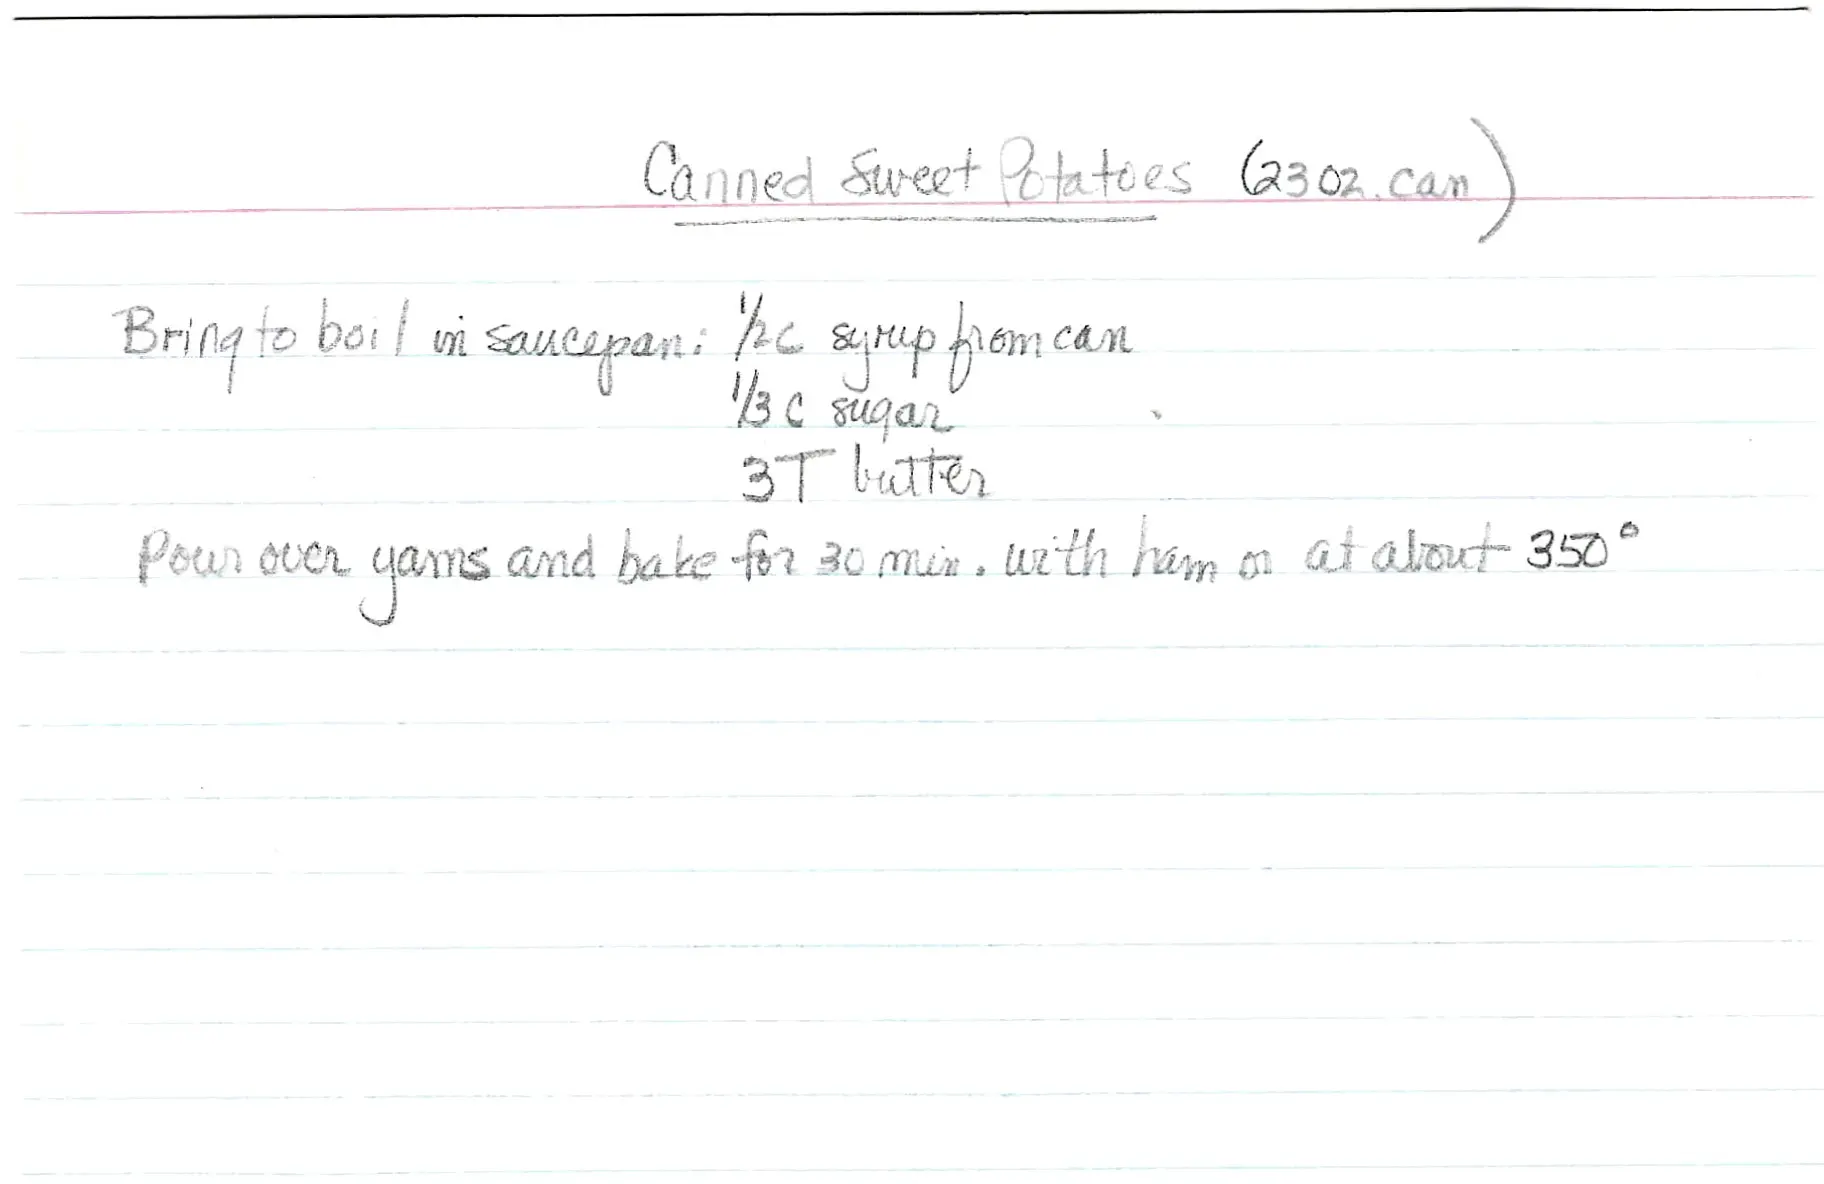 Canned Sweet Potatoes (23 oz. can)
Bring to boil in saucepan: 1/2 c syrup from can
1/3 c sugar
3T butter
Pour over yams and bake for 30 min. with ham or at about 350°